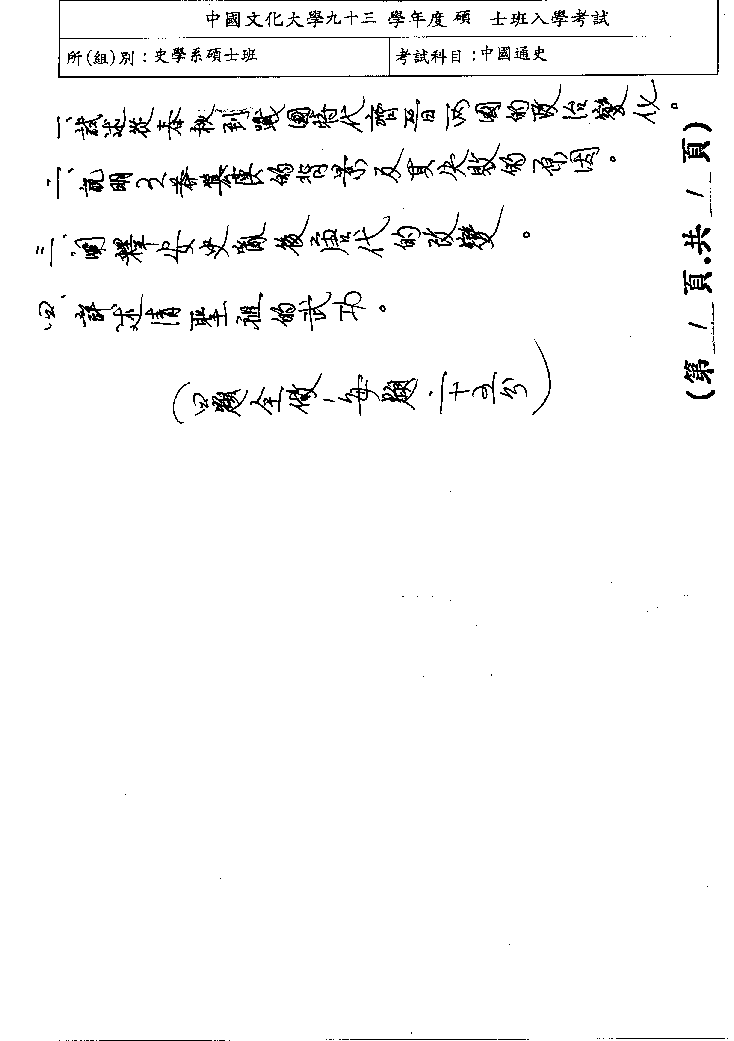 中國文化大學九十三 學年度 碩 士班入學考試
所(組)別：史學系碩士班
考試科目：中國通史
一、試述從春秋到戰國時代齊晉兩國的政治變化。
二、說明王莽篡漢的背景及其失敗的原因。
三、闡釋安史亂後唐代的改變。
四、詳述清聖祖的武功。
（四題全做，每題二十五分）
(第 1 頁.共 1 頁)